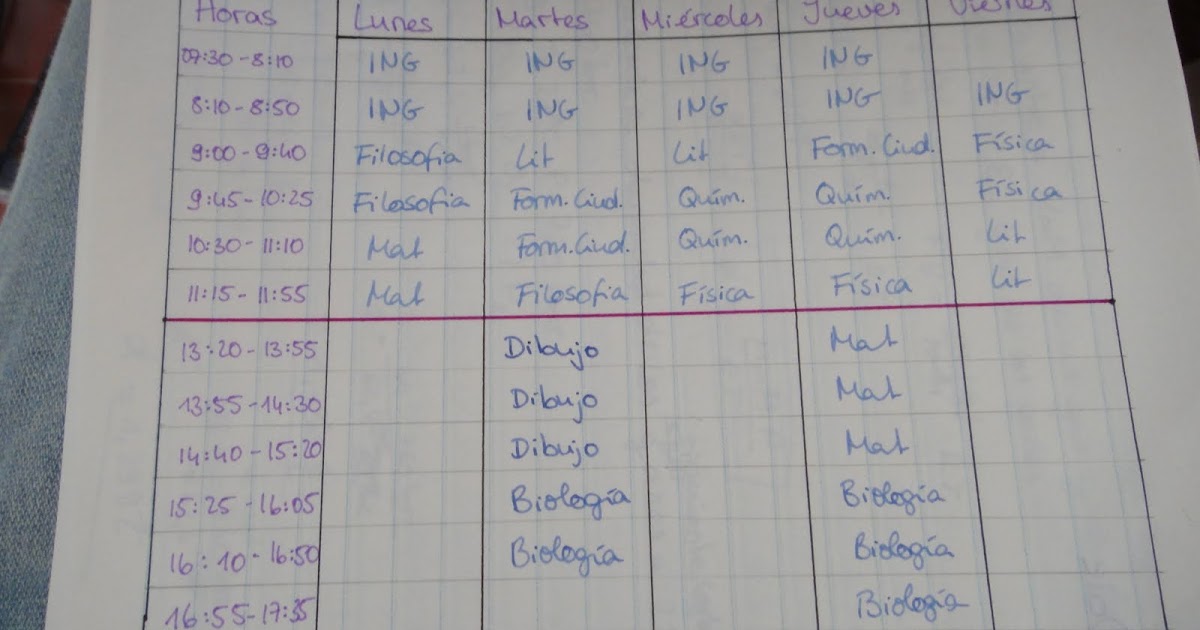 Horas Lunes Martes Miércoles Jueves Viernes
07:30-8:10 ING ING ING ING
8:10-8:50 ING ING ING ING ING
9:00-9:40 Filosofia Lit Lit Form. Ciud. Física
9:45-10:25 Filosofia Form. Ciud. Quím. Quím. Física
10:30-11:10 Mat Form. Ciud. Quím. Quím. Lit
11:15-11:55 Mat Filosofia Física Física Lit
13:20-13:55 Dibujo Mat
13:55-14:30 Dibujo Mat
14:40-15:20 Dibujo Mat
15:25-16:05 Biología Biología
16:10-16:50 Biología Biología
16:55-17:35 Biología